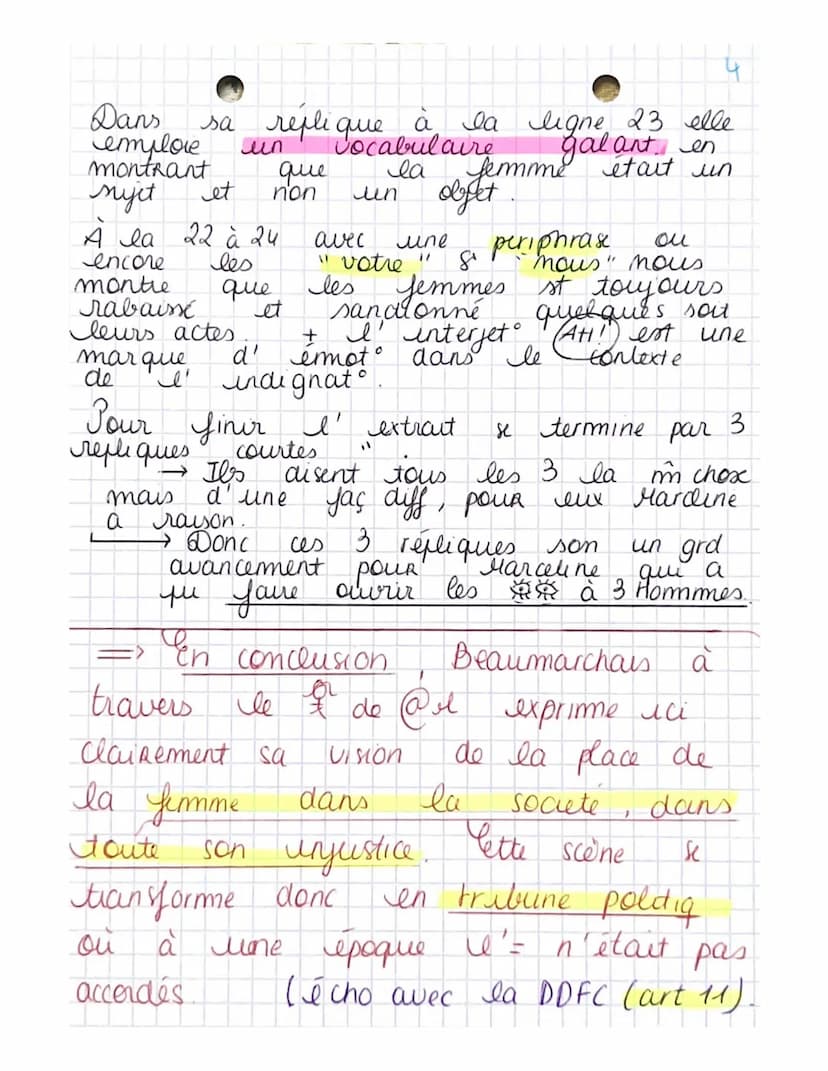 4
Dans sa réplique à la ligne 23 elle
emploie un vocabulaire galant. en
montrant que la femmme était un
sujet et non un objet.
À la 22 à 24 avec une periphrase ou
encore les "votre" & "nous" nous
montre que les femmes st toujours
rabaissé et sanctionné quelques soit
leurs actes. + l'interjet° (AH!) est une
marque d'émot° dans le contexte
de l'indignat°.
Pour finir l'extrait se termine par 3
repliques "courtes".
→ Ils disent tous les 3 la m̂ chose
mais d'une faç diff, pour eux Marceline
a raison.
→ Donc ces 3 répliques son un grd
avancement pour Marceline qui a
pu faire ouvrir les à 3 Hommmes.
=> En conclusion, Beaumarchais à
travers le de @el exprime ici
clairement sa vision de la place de
la femme dans la societé, dans
toute son injustice. Cette scène se
transforme donc en tribune politiq
où à une époque l'= n'était pas
accordés. (écho avec la DDFC (art 11).